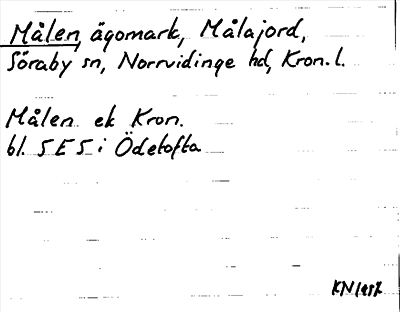 Målen, ägomark, Målajord,
Söraby sn, Norrvidinge hd, Kron. l.
Målen ek Kron.
bl. 5 E 5 i Ödetofta
KN 1957